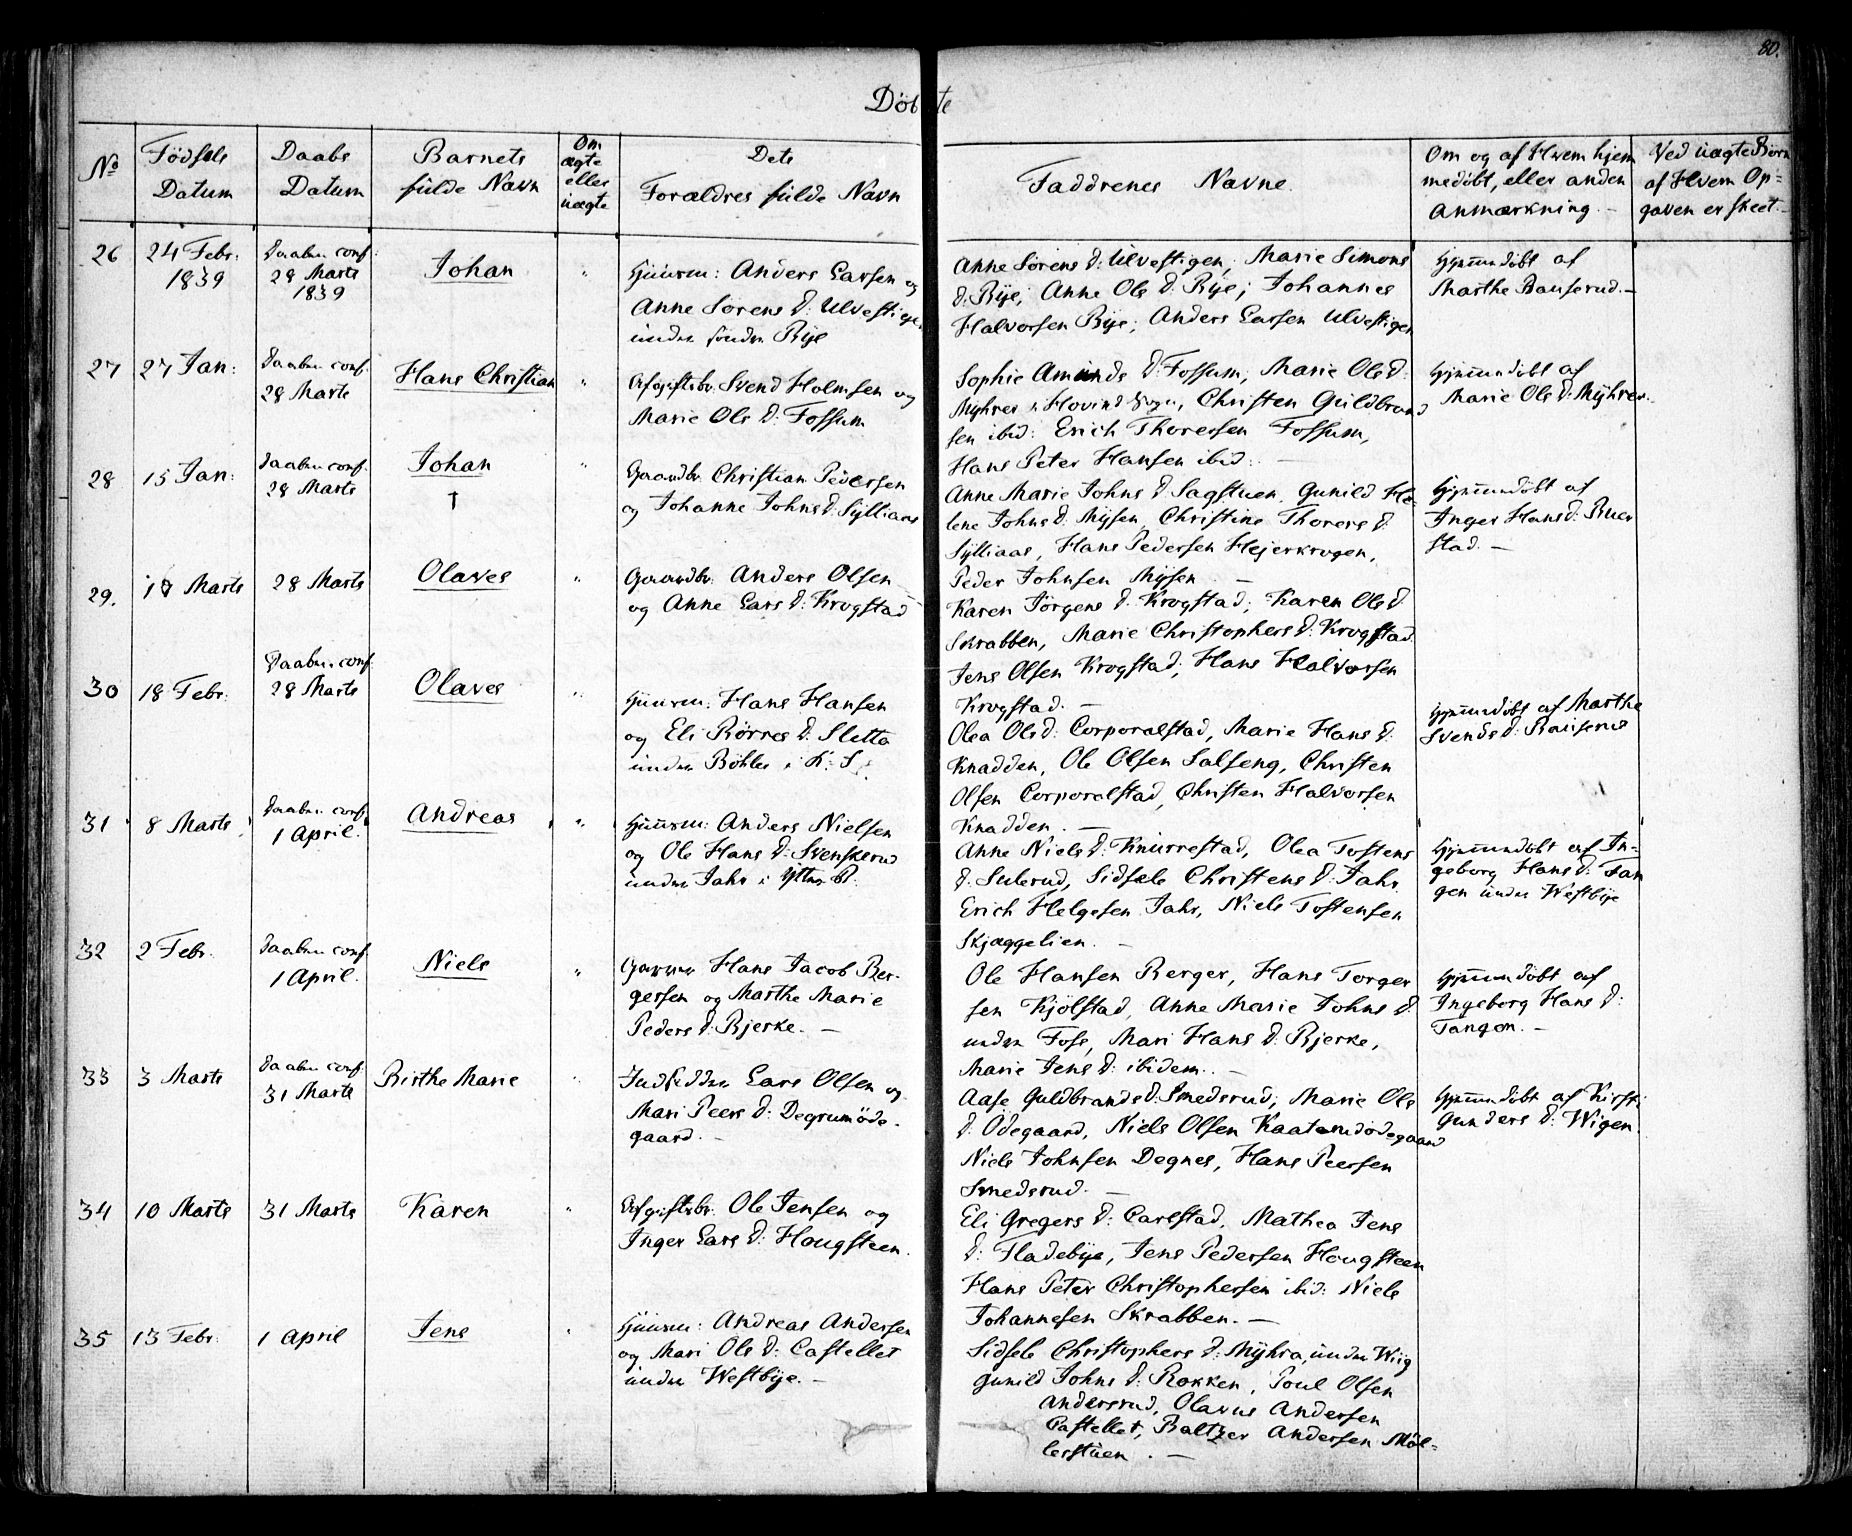 80.
Döbte
No
Födsels Datum
Daabs Datum
Barnets fulde Navn
Om ægte eller uægte
Dets Forældres fulde Navn
Faddrenes Navne.
Om og af Hvem hjemmedöbt, eller anden Anmærkning. –
Ved uægte Börn af Hvem Opgaven er skeet. –
26
24 Febr: 1839
Daaben conf. 28 Marts 1839
Johan
"
Huusm: Anders Larsen og
Anne Sörens d: Ulvestigen
under söndre Bÿe
Anne Sörens d: Ulvestigen, Marie Simons
d: Bÿe, Anne Ols d: Bÿe; Johannes
Halvorsen Bÿe; Anders Larsen Ulvestigen
Hjemmedöbt af
Marthe Bauserud. –
27
27 Jan:
Daaben conf. 28 Marts
Hans Christian
"
Afgiftsbr. Svend Holmsen og
Marie Ols d: Fossum
Sophie Amunds d: Fossum, Marie Ols d:
Myhrer i Hovind Sogn, Christen Guldbrand
sen ibid: Erich Thoresen Fossum,
Hans Peter Hansen ibid: –
Hjemmedöbt af
Marie Ols d: Mÿhrer.
28
15 Jan:
Daaben conf. 28 Marts
Johan
†
"
Gaardbr. Christian Pedersen
og Johanne Johns d: Sÿlliaas
Anne Marie Johns d: Sagstuen, Gunild He
lene Johns d: Mÿsen, Christine Thorers d:
Sÿlliaas, Hans Pedersen Hejerkrogen,
Peder Johnsen Mÿsen. –
Hjemmedöbt af
Inger Hans d: Buer
stad. –
29.
17 Marts
28 Marts
Olaves
"
Gaardbr. Anders Olsen
og Anne Lars d: Krogstad
Karen Jörgens d: Krogstad; Karen Ols d:
Skrabben, Marie Christophers d: Krogstad
Jens Olsen Krogstad; Hans Halvorsen
Krogstad. –
30
18 Febr:
Daaben conf. 28 Marts
Olaves
"
Huusm: Hans Hansen
og Eli Börres d: Sletta
under Böhler i K: S
Olea Ols d: Corporalstad, Marie Hans d:
Knadden, Ole Olsen Salseng, Christen
Olsen Corporalstad, Christen Halvorsen
Knadden. –
Hjemmedöbt af Marthe
Svends d: Bauserud
31
8 Marts
Daaben conf. 1 April.
Andreas
"
Huusm: Anders Nielsen
og Ole Hans d: Svenskerud
under Jahr i
Anne Niels d: Knurrestad, Olea Tostens
d: Sulerud, Sidsele Christens d: Jahr
Erich Helgesen Jahr, Niels Tostensen
Skjæggelien. –
Hjemmedöbt af In-
geborg Hans d: Tan
gen under Westbÿe
32
2 Febr.
Daaben conf. 1 April.
Niels
"
Hans Jacob Ber-
gersen og Marthe Marie
Peders d: Bjerke. –
Ole Hansen Berger, Hans Torger
sen Kjölstad, Anne Marie Johns d:
under Foss, Mari Hans d: Bjerke,
Marie Jens d: ibidem. –
Hjemmedöbt af
Ingeborg Hans d:
Tangen. –
33
3 Marts
Daaben conf. 31 Marts
Birthe Marie
"
Indsidder Lars Olsen og
Mari Peers d: Degrumöde-
gaard. –
Aase Guldbrands d: Smedsrud; Marie Ols
d: Ödegaard, Niels Olsen Kaatorudödegaard
Niels Johnsen Degnes, Hans Peersen
Smedsrud. –
Hjemmedöbt af Kirsti
Gunders d: Wigen.
34
10 Marts
31 Marts
Karen
"
Afgiftsbr. Ole Jensen og
Inger Lars d: Hougsteen.
Eli Gregers d: Carlstad, Mathea Jens
d: Fladebÿe, Jens Pedersen Hougsteen
Hans Peter Christophersen ibid: Niels
Johannesen Skrabben. –
35
13 Febr:
1 April
Jens
"
Huusm: Andreas Andersen
og Mari Ols d: Castellet
under Westbÿe. –
Sidsele Christophers d: Mÿhra, under Wiig
Gunild Johns d: Rokken, Poul Olsen
Andersrud, Olavus Andersen
Castellet, Baltzer Andersen Möl-
lerstuen. –